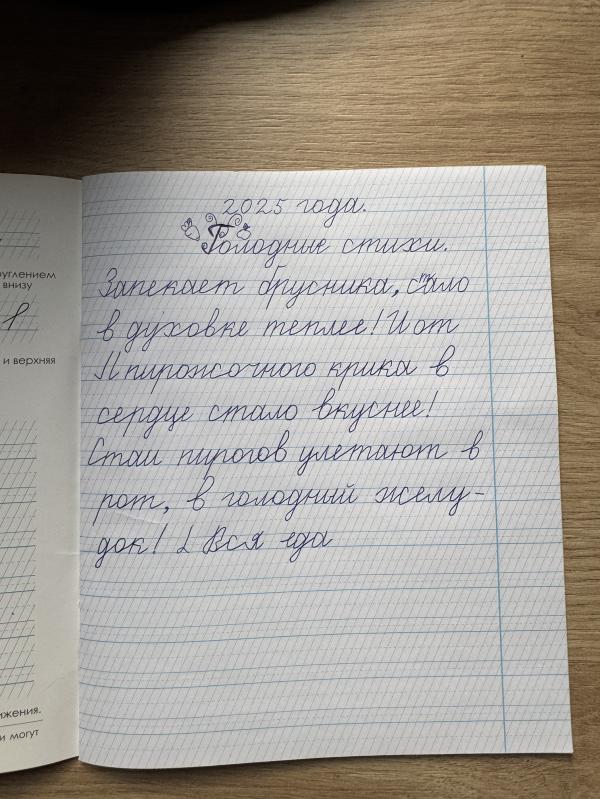 2025 года.
Голодные стихи.
Запекает брусника, стало
в духовке теплее! И от
пирожочного крика в
сердце стало вкуснее!
Стаи пирогов улетают в
рот, в голодный желу-
док! Вся еда
углением
внизу
и верхняя
ижения.
и могут